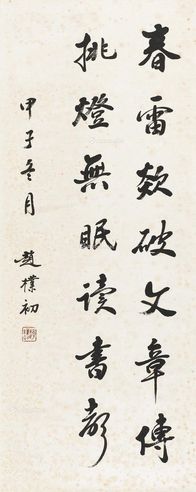 春雷破文章傳
挑燈無眠读書聲
甲子冬月
趙樸初